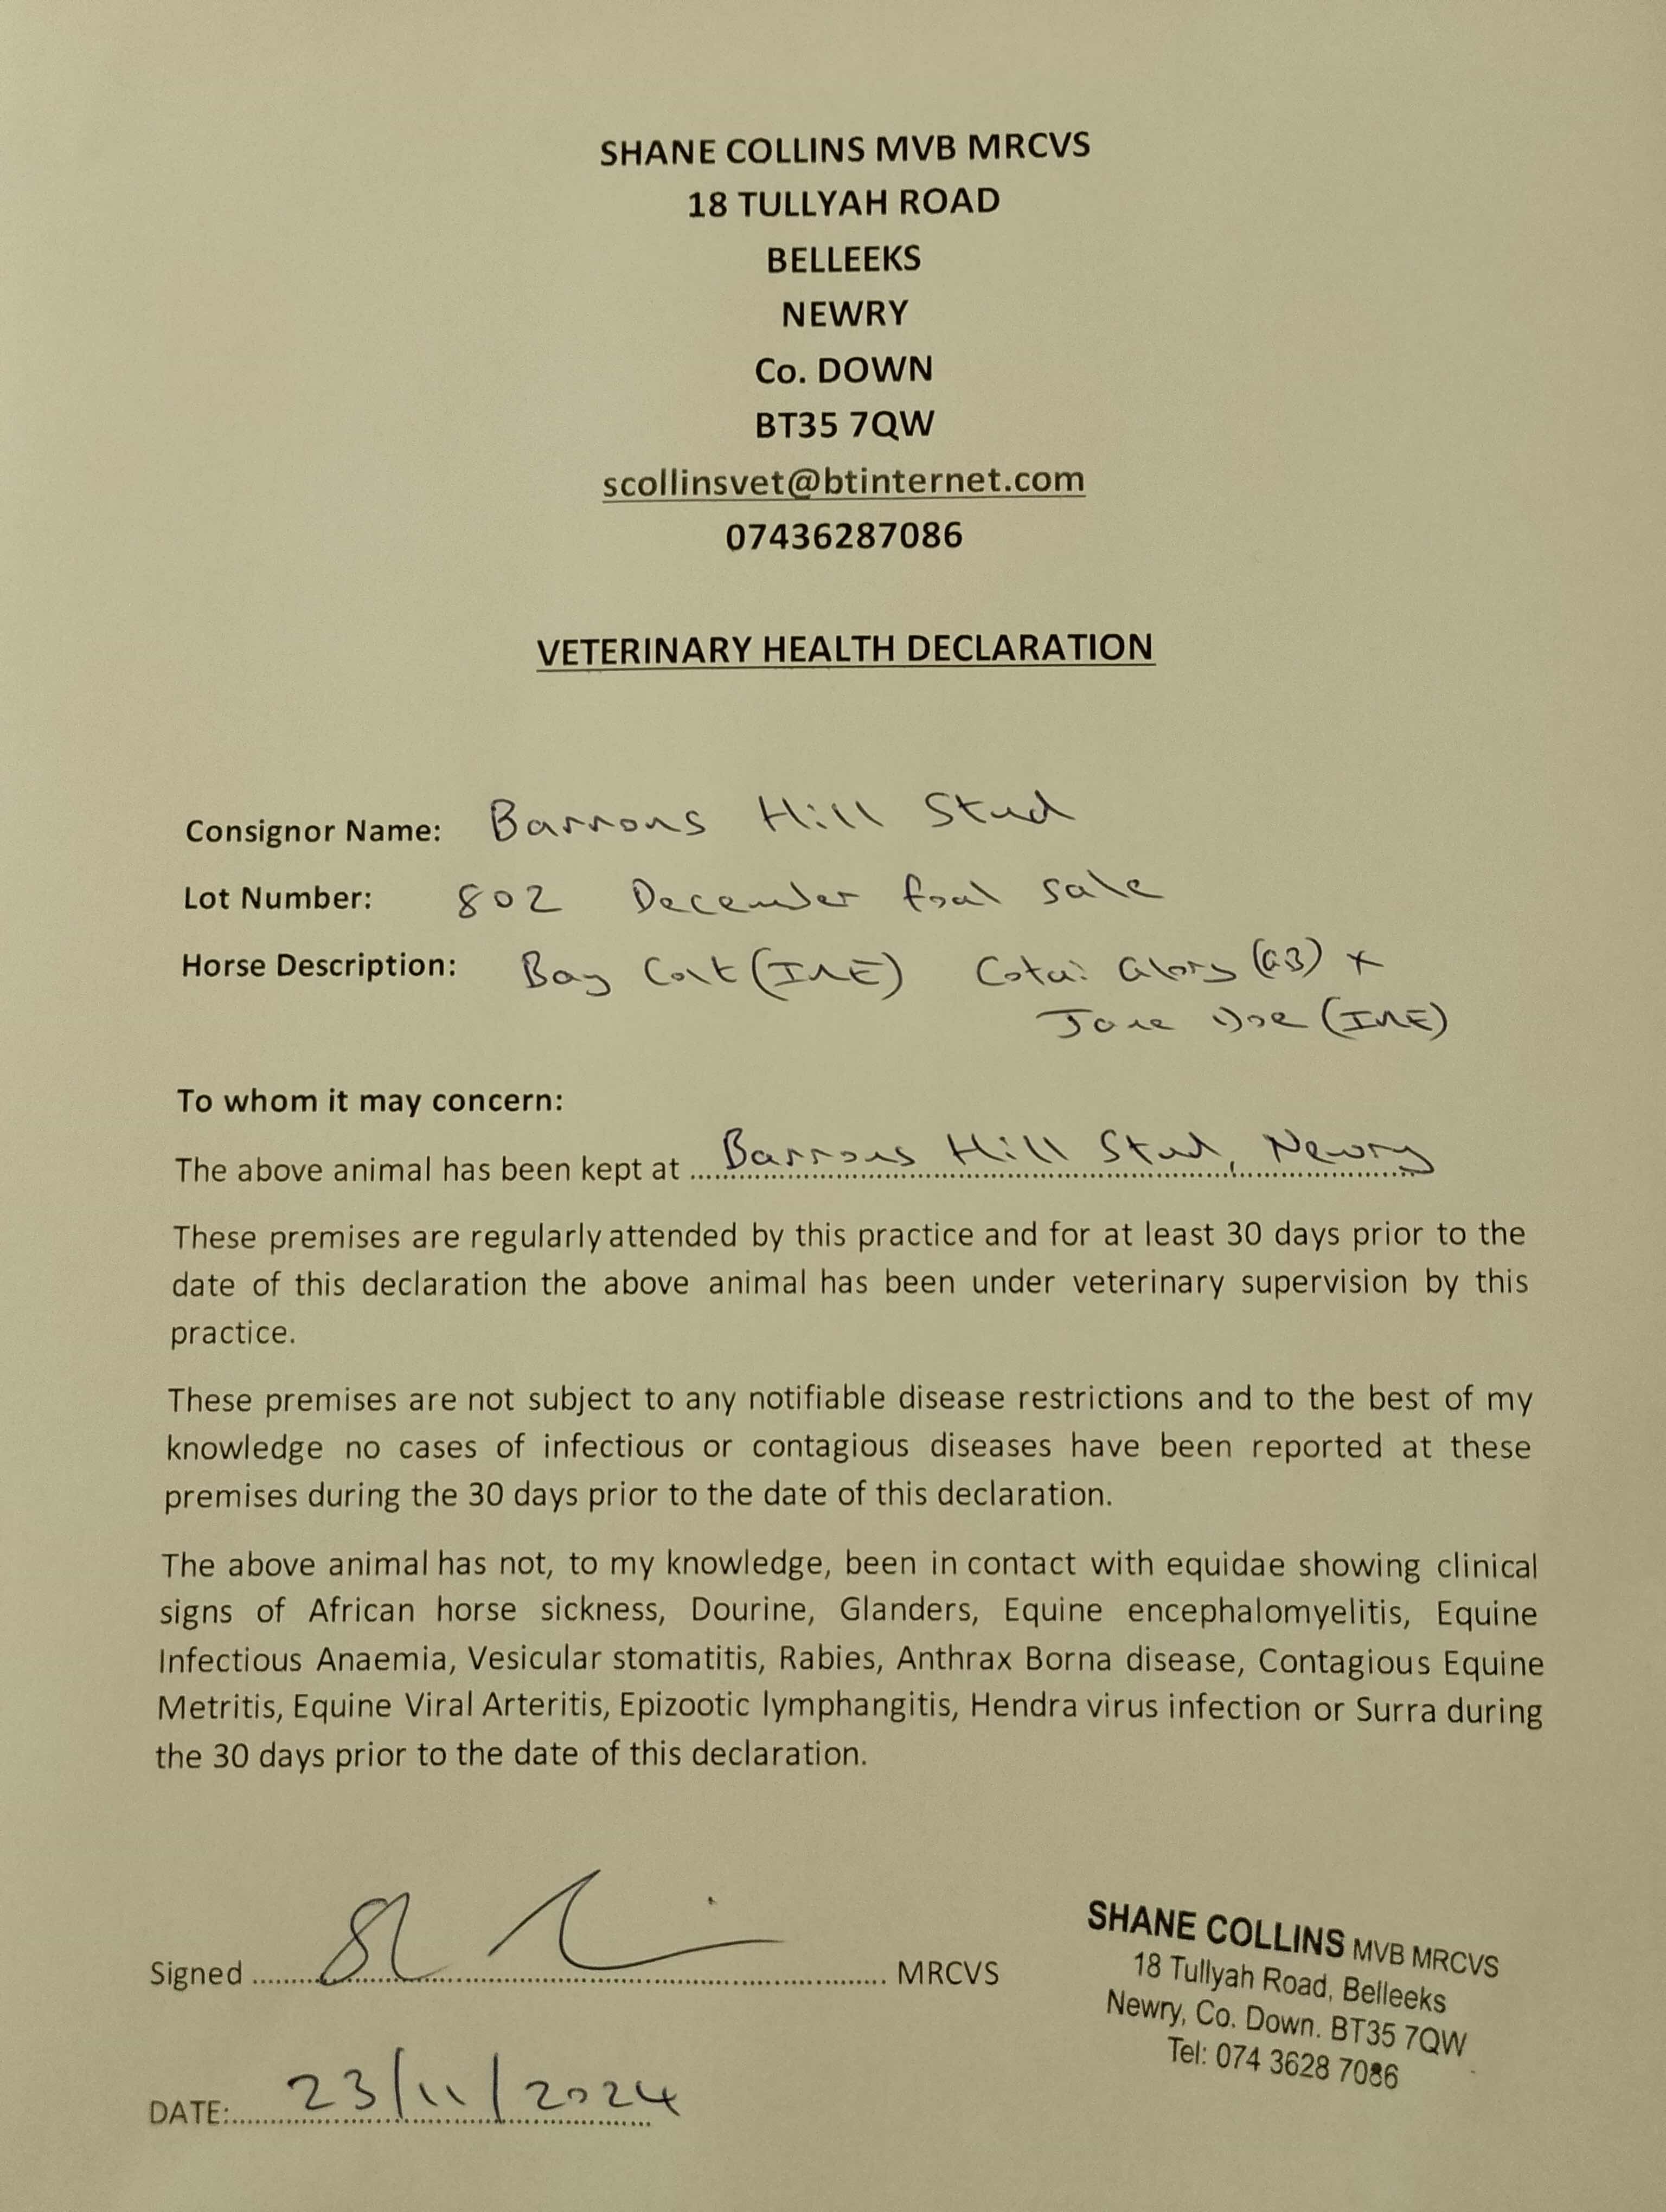 SHANE COLLINS MVB MRCVS
18 TULLYAH ROAD
BELLEEKS
NEWRY
Co. DOWN
BT35 7QW
scollinsvet@btinternet.com
07436287086
VETERINARY HEALTH DECLARATION
Consignor Name: Barrons Hill Stud
Lot Number: 802 December foal sale
Horse Description: Bay Colt (IRE) Cotai Glory (GB) x
Jane Doe (IRE)
To whom it may concern:
The above animal has been kept at Barrons Hill Stud, Newry
These premises are regularly attended by this practice and for at least 30 days prior to the
date of this declaration the above animal has been under veterinary supervision by this
practice.
These premises are not subject to any notifiable disease restrictions and to the best of my
knowledge no cases of infectious or contagious diseases have been reported at these
premises during the 30 days prior to the date of this declaration.
The above animal has not, to my knowledge, been in contact with equidae showing clinical
signs of African horse sickness, Dourine, Glanders, Equine encephalomyelitis, Equine
Infectious Anaemia, Vesicular stomatitis, Rabies, Anthrax Borna disease, Contagious Equine
Metritis, Equine Viral Arteritis, Epizootic lymphangitis, Hendra virus infection or Surra during
the 30 days prior to the date of this declaration.
Signed MRCVS
SHANE COLLINS MVB MRCVS
18 Tullyah Road, Belleeks
Newry, Co. Down. BT35 7QW
Tel: 074 3628 7086
DATE: 23/11/2024